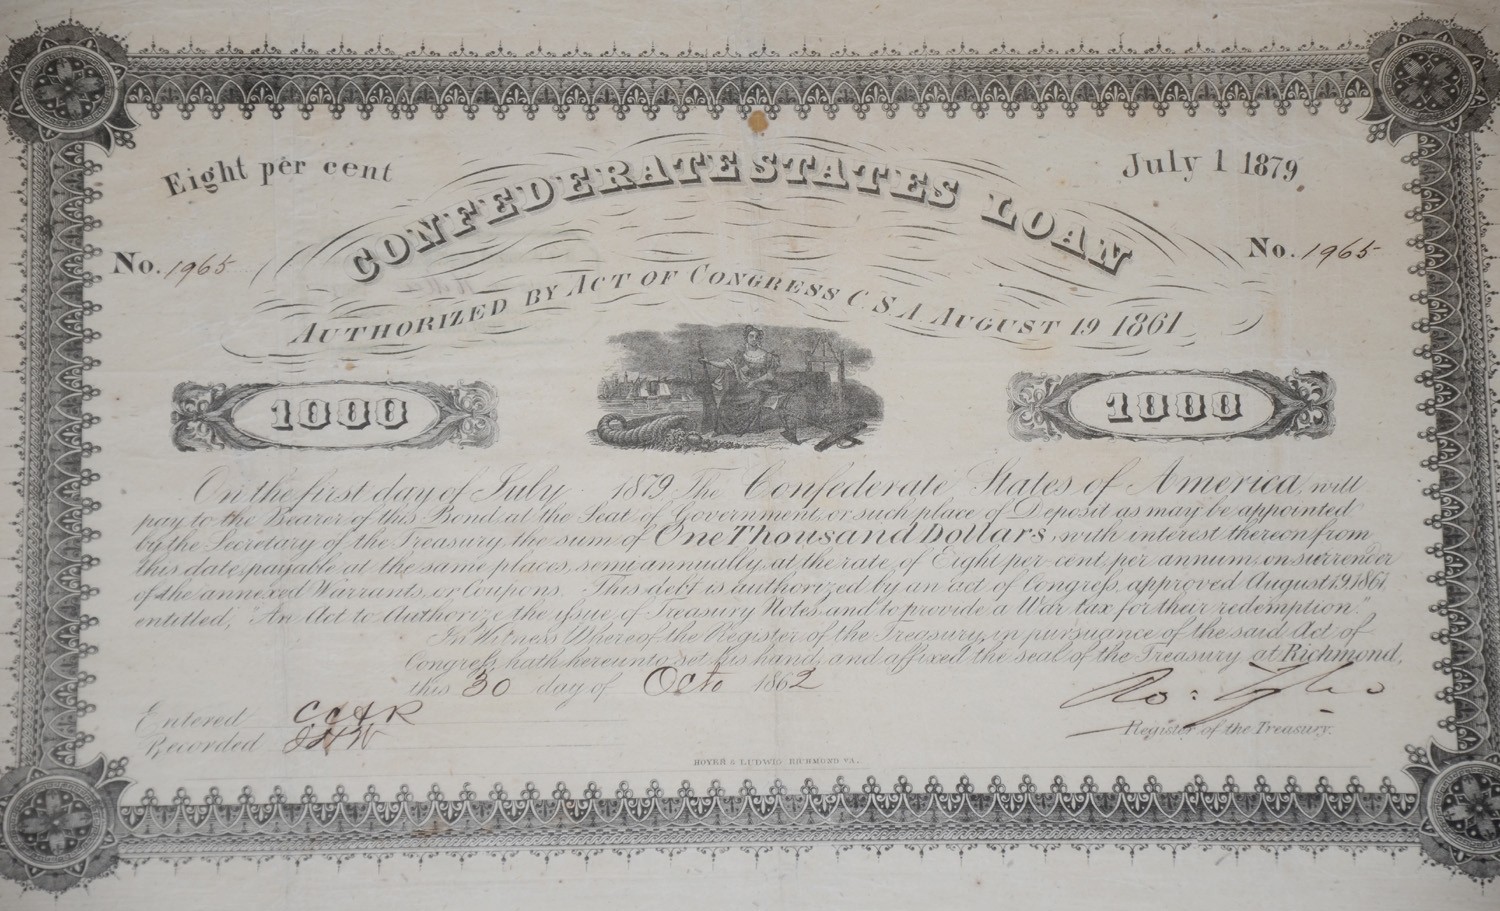 Eight per cent
July 1 1879
CONFEDERATE STATES LOAN
No. 1965
No. 1965
AUTHORIZED BY ACT OF CONGRESS C. S. A. AUGUST 19 1861
1000
1000
On the first day of July 1879 The Confederate States of America, will
pay to the Bearer of this Bond, at the Seat of Government, or such place of Deposit as may be appointed
by the Secretary of the Treasury, the sum of One Thousand Dollars, with interest thereon from
this date, payable at the same places, semi annually, at the rate of Eight per cent. per annum, on surrender
of the annexed Warrants, or Coupons. This debt is authorized by an act of Congress, approved August 19, 1861,
entitled, "An Act to Authorize the issue of Treasury Notes, and to provide a War tax for their redemption."
In Witness Whereof the Register of the Treasury, in pursuance of the said Act of
Congress, hath hereunto set his hand, and affixed the seal of the Treasury at Richmond,
this 30 day of Octo 1862
Entered CCAR
Recorded
Ro: Tyler
Register of the Treasury.
HOYER & LUDWIG RICHMOND VA.